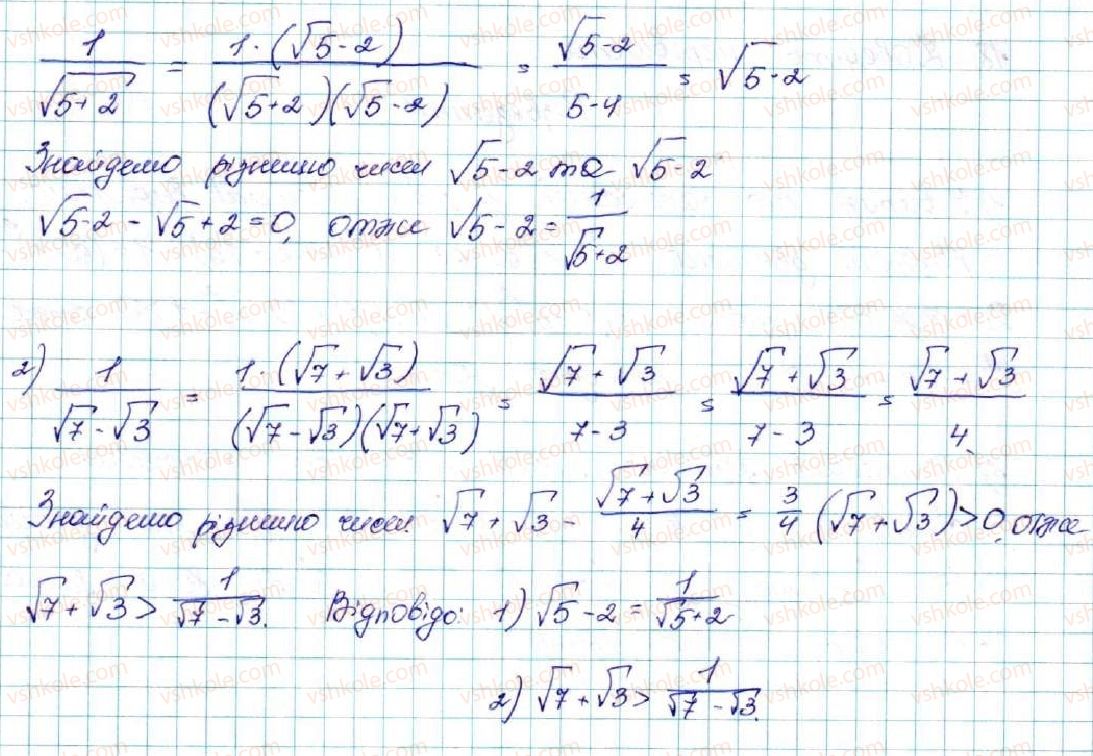 1/√(5+2) = 1·(√5-2)/(√5+2)(√5-2) = √5-2/5-4 = √5-2
Знайдемо різницю чисел √5-2 та √5-2
√5-2 - √5+2 = 0, отже √5-2 = 1/√5+2
2) 1/√7-√3 = 1·(√7+√3)/(√7-√3)(√7+√3) = √7+√3/7-3 = √7+√3/7-3 = √7+√3/4.
Знайдемо різницю чисел √7+√3 - √7+√3/4 = 3/4(√7+√3)>0, отже
√7+√3 > 1/√7-√3. Відповідь: 1) √5-2 = 1/√5+2
2) √7+√3 > 1/√7-√3.